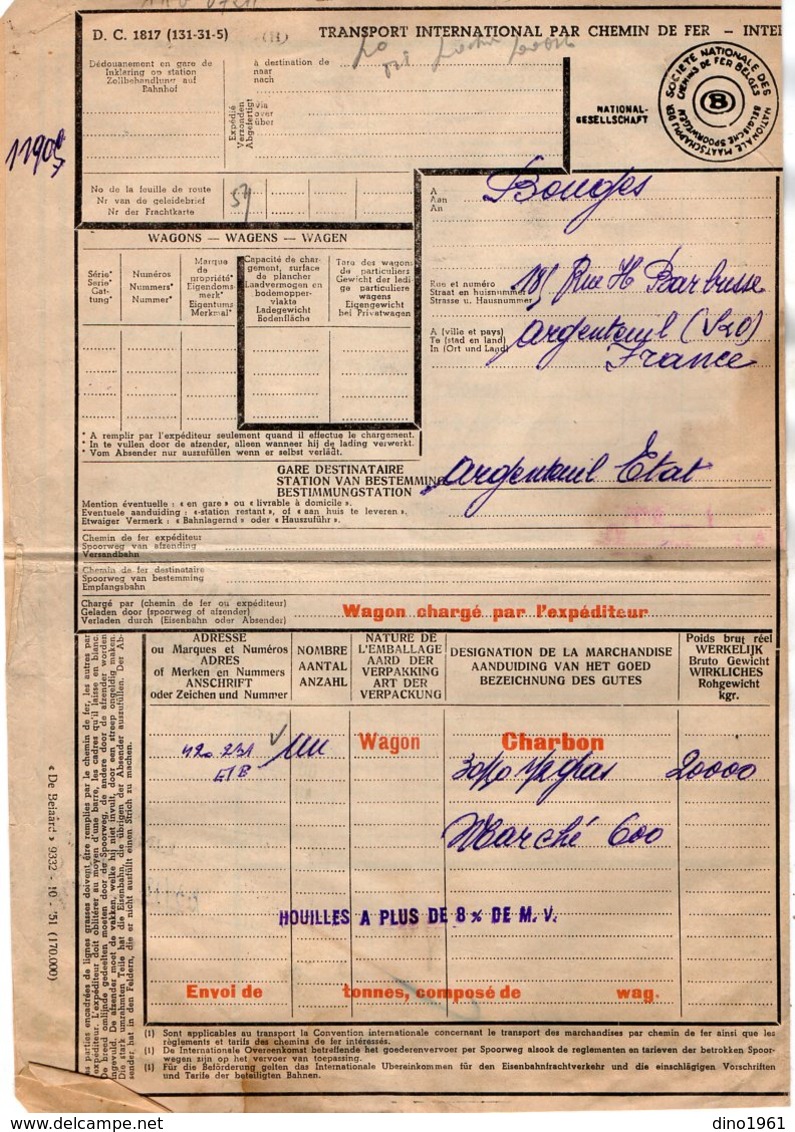 D. C. 1817 (131-31-5)
(H)
TRANSPORT INTERNATIONAL PAR CHEMIN DE FER — INTER
Dédouanement en gare de
Inklaring op station
Zollbehandlung auf
Bahnhof
à destination de
naar
nach
Expédié
Verzonden
Abgefertigt
via
over
über
NATIONAL-
GESELLSCHAFT
SOCIÉTÉ NATIONALE DES CHEMINS DE FER BELGES
NATIONALE MAATSCHAPPIJ DER BELGISCHE SPOORWEGEN
B
No de la feuille de route
Nr van de geleidebrief
Nr der Frachtkarte
A
Aan
An
Bouges
Rue et numéro
Straat en huisnummer
Strasse u. Hausnummer
18, Rue H Barbusse
A (ville et pays)
Te (stad en land)
In (Ort und Land)
Argenteuil (S&O)
France
WAGONS — WAGENS — WAGEN
Série*
Serie*
Gat-
tung*
Numéros
Nummers*
Nummer*
Marque
de
propriété*
Eigendoms-
merk*
Eigentums-
Merkmal*
Capacité de char-
gement, surface
de plancher
Laadvermogen en
bodemopper-
vlakte
Ladegewicht
Bodenfläche
Tara des wagons
de particuliers
Gewicht der ledi
ge particuliere
wagens
Eigengewicht
bei Privatwagen
* A remplir par l'expéditeur seulement quand il effectue le chargement.
* In te vullen door de afzender, alleen wanneer hij de lading verwerkt.
* Vom Absender nur auszufüllen wenn er selbst verlädt.
GARE DESTINATAIRE
STATION VAN BESTEMMING
BESTIMMUNGSTATION
Argenteuil Etat
Mention éventuelle : « en gare » ou « livrable à domicile ».
Eventuele aanduiding : « -station restant », of « aan huis te leveren ».
Etwaiger Vermerk : « Bahnlagernd » oder « Hauszuführ ».
Chemin de fer expéditeur
Spoorweg van afzending
Versandbahn
Chemin de fer destinataire
Spoorweg van bestemming
Empfangsbahn
Chargé par (chemin de fer ou expéditeur)
Geladen door (spoorweg of afzender)
Verladen durch (Eisenbahn oder Absender)
Wagon chargé par l'expéditeur
ADRESSE
ou Marques et Numéros
ADRES
of Merken en Nummers
ANSCHRIFT
oder Zeichen und Nummer
NOMBRE
AANTAL
ANZAHL
NATURE DE
L'EMBALLAGE
AARD DER
VERPAKKING
ART DER
VERPACKUNG
DESIGNATION DE LA MARCHANDISE
AANDUIDING VAN HET GOED
BEZEICHNUNG DES GUTES
Poids brut réel
WERKELIJK
Bruto Gewicht
WIRKLICHES
Rohgewicht
kgr.
420 231
ETB
un
Wagon
Charbon
1/2 gras
20000
Marché 600
HOUILLES A PLUS DE 8% DE M. V.
Envoi de tonnes, composé de wag.
(1) Sont applicables au transport la Convention internationale concernant le transport des marchandises par chemin de fer ainsi que les
règlements et tarifs des chemins de fer intéressés.
(1) De Internationale Overeenkomst betreffende het goederenvervoer per Spoorweg alsook de reglementen en tarieven der betrokken Spoor-
wegen zijn op het vervoer van toepassing.
(1) Für die Beförderung gelten das Internationale Uebereinkommen für den Eisenbahnfrachtverkehr und die einschlägigen Vorschriften
und Tarife der beteiligten Bahnen.
« De Beiaard » 9332 - 10 - 51 (170.000)
dino1961